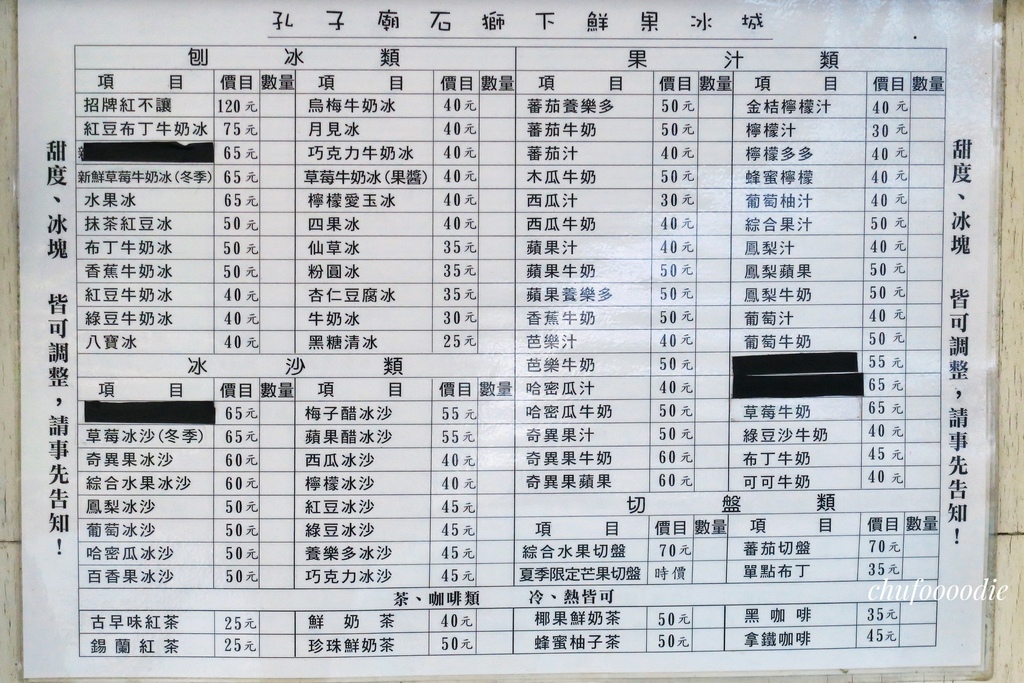 孔子廟石獅下鮮果冰城
刨冰類
項目 價目 數量 項目 價目 數量
招牌紅不讓 120元 烏梅牛奶冰 40元
紅豆布丁牛奶冰 75元 月見冰 40元
65元 巧克力牛奶冰 40元
新鮮草莓牛奶冰(冬季) 65元 草莓牛奶冰(果醬) 40元
水果冰 65元 檸檬愛玉冰 40元
抹茶紅豆冰 50元 四果冰 40元
布丁牛奶冰 50元 仙草冰 35元
香蕉牛奶冰 50元 粉圓冰 35元
紅豆牛奶冰 40元 杏仁豆腐冰 35元
綠豆牛奶冰 40元 牛奶冰 30元
八寶冰 40元 黑糖清冰 25元
冰沙類
項目 價目 數量 項目 價目 數量
65元 梅子醋冰沙 55元
草莓冰沙(冬季) 65元 蘋果醋冰沙 55元
奇異果冰沙 60元 西瓜冰沙 40元
綜合水果冰沙 60元 檸檬冰沙 40元
鳳梨冰沙 50元 紅豆冰沙 45元
葡萄冰沙 50元 綠豆冰沙 45元
哈密瓜冰沙 50元 養樂多冰沙 45元
百香果冰沙 50元 巧克力冰沙 45元
果汁類
項目 價目 數量 項目 價目 數量
蕃茄養樂多 50元 金桔檸檬汁 40元
蕃茄牛奶 50元 檸檬汁 30元
蕃茄汁 40元 檸檬多多 40元
木瓜牛奶 50元 蜂蜜檸檬 40元
西瓜汁 30元 葡萄柚汁 40元
西瓜牛奶 40元 綜合果汁 50元
蘋果汁 40元 鳳梨汁 40元
蘋果牛奶 50元 鳳梨蘋果 50元
蘋果養樂多 50元 鳳梨牛奶 50元
香蕉牛奶 50元 葡萄汁 40元
芭樂汁 40元 葡萄牛奶 50元
芭樂牛奶 50元 55元
哈密瓜汁 40元 65元
哈密瓜牛奶 50元 草莓牛奶 65元
奇異果汁 50元 綠豆沙牛奶 40元
奇異果牛奶 60元 布丁牛奶 45元
奇異果蘋果 60元 可可牛奶 40元
切盤類
項目 價目 數量 項目 價目 數量
綜合水果切盤 70元 蕃茄切盤 70元
夏季限定芒果切盤 時價 單點布丁 35元
茶、咖啡類 冷、熱皆可
古早味紅茶 25元 鮮奶茶 40元 椰果鮮奶茶 50元 黑咖啡 35元
錫蘭紅茶 25元 珍珠鮮奶茶 50元 蜂蜜柚子茶 50元 拿鐵咖啡 45元
甜度、冰塊 皆可調整，請事先告知！
甜度、冰塊 皆可調整，請事先告知！
chufoooodie